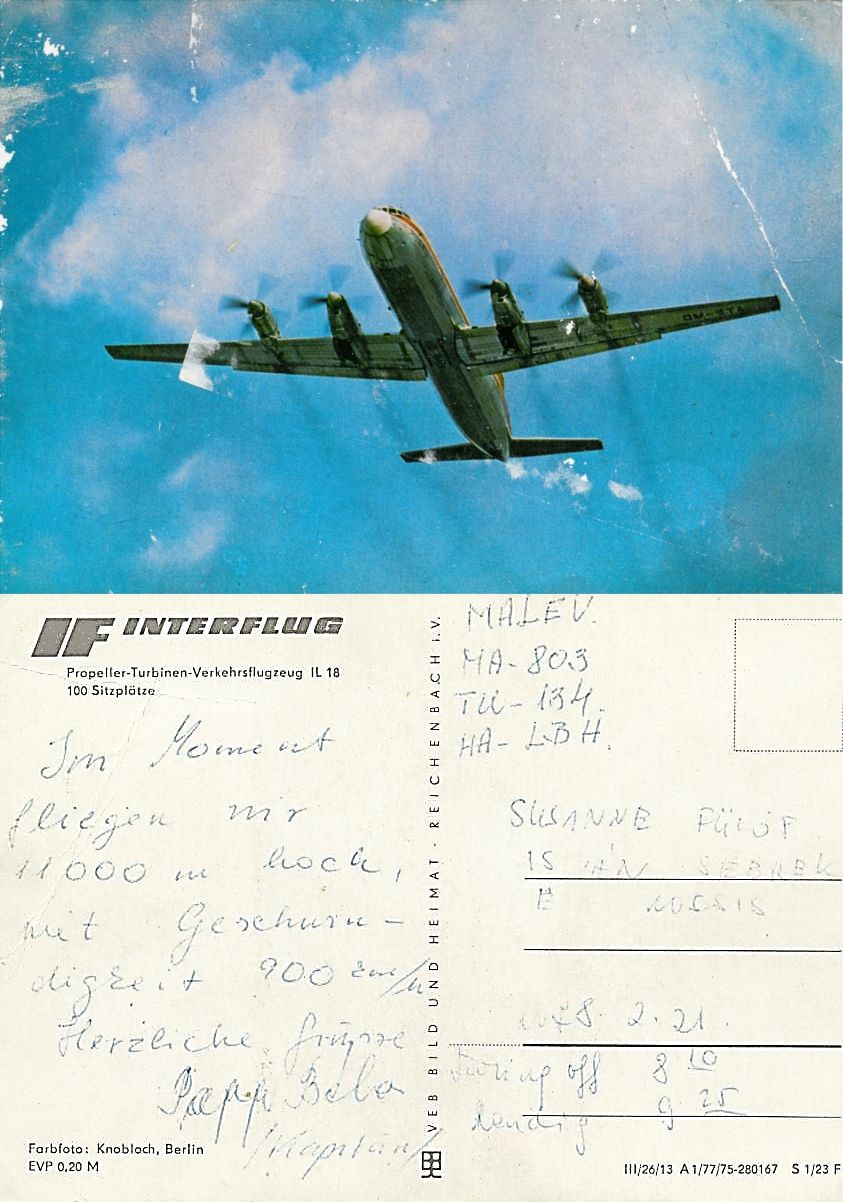 DM-STA
IF INTERFLUG
Propeller-Turbinen-Verkehrsflugzeug IL 18
100 Sitzplätze
Im Moment
fliegen wir
11000 m hoch,
mit Geschwin-
digkeit 900 km/h
Herzliche Grüsse
Papp Bela
(Kapitän)
Farbfoto: Knobloch, Berlin
EVP 0,20 M
VEB BILD UND HEIMAT · REICHENBACH i.V.
MALEV.
MA-803
TU-134.
HA-LBH.
SUSANNE FÜLÖP
2.21.
off 8 10
9 25
III/26/13 A 1/77/75-280167 S 1/23 F